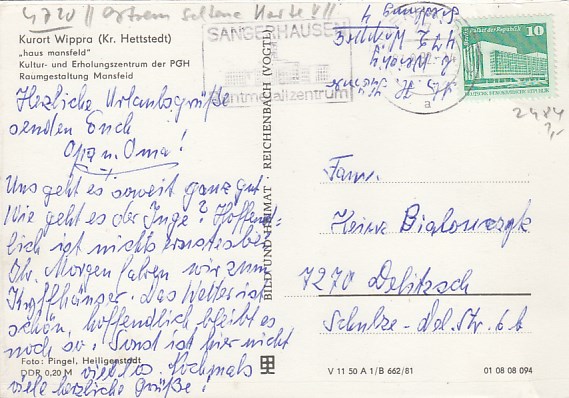 4720 || extrem seltene Karte !!!
Kurort Wippra (Kr. Hettstedt)
„haus mansfeld"
Kultur- und Erholungszentrum der PGH
Raumgestaltung Mansfeld
SANGERHAUSEN
a
Palast der Republik
10
DEUTSCHE DEMOKRATISCHE REPUBLIK
2484
Herzliche Urlaubsgrüße
senden Euch
Opa u. Oma!
Uns geht es soweit ganz gut.
Wie geht es der Inge? Hoffent-
lich ist nichts ernstes bei
Ihr. Morgen fahren wir zum
Kyffhäuser. Das Wetter ist
schön, hoffendlich bleibt es
noch so. Sonst ist hier nicht
viel los. Nochmals
viele herzliche Grüße!
Foto: Pingel, Heiligenstadt
DDR 0,20 M
BILD UND HEIMAT · REICHENBACH (VOGTL)
Fam.
Heinz
7270 Delitzsch
Schulze-del.Str. 6b
V 11 50 A 1/B 662/81
01 08 08 094